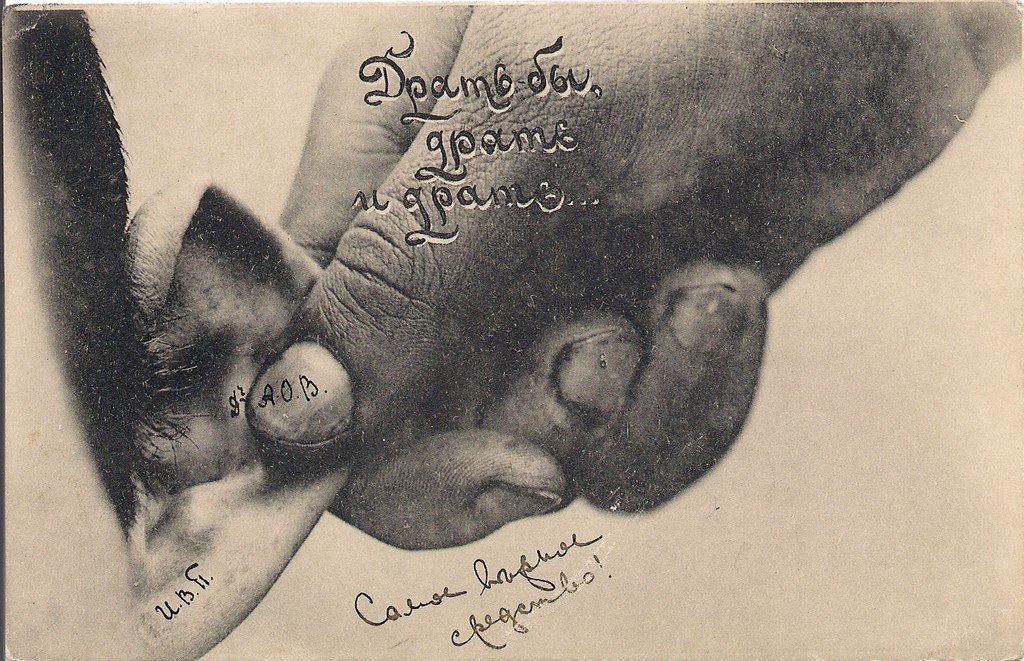 Драть-бы,
драть
и драть...
Дъ
А.О.В.
И.В.П.
Самое вѣрное
средство!